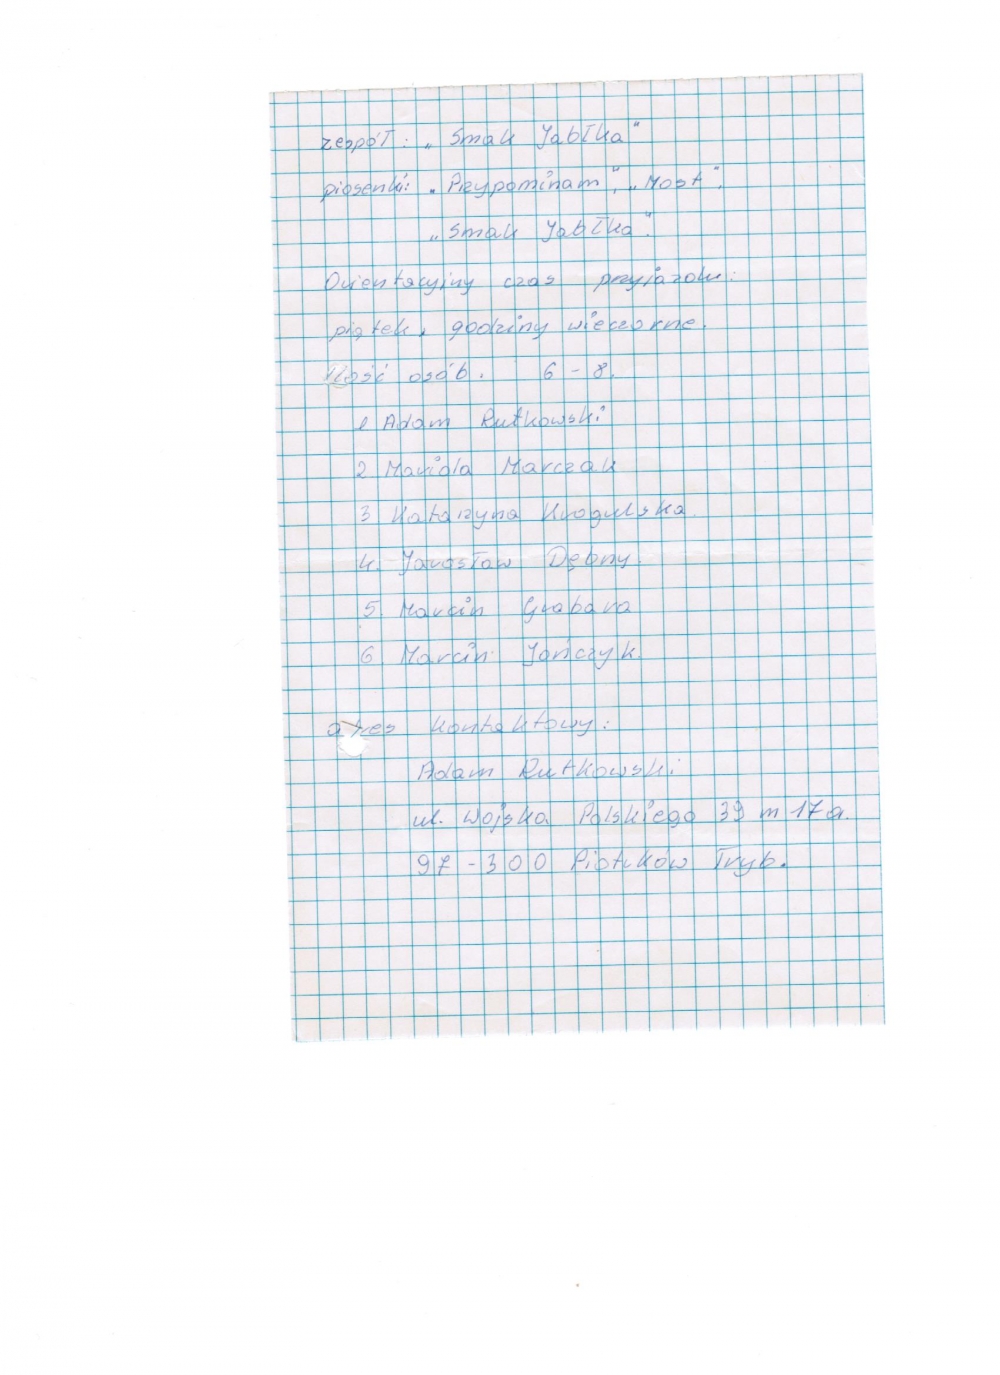 zespół: „Smak Jabłka"
piosenki: „Przypominam", „Most",
„Smak Jabłka".
Orientacyjny czas przyjazdu:
piątek, godziny wieczorne.
Ilość osób. 6 - 8.
1 Adam Rutkowski
2 Mariola Marczak
3 Katarzyna Krogulska.
4. Jarosław Dębny.
5. Marcin Grabara
6. Marcin Jończyk.
adres kontaktowy:
Adam Rutkowski
ul. Wojska Polskiego 39 m 17a.
97-300 Piotrków Tryb.